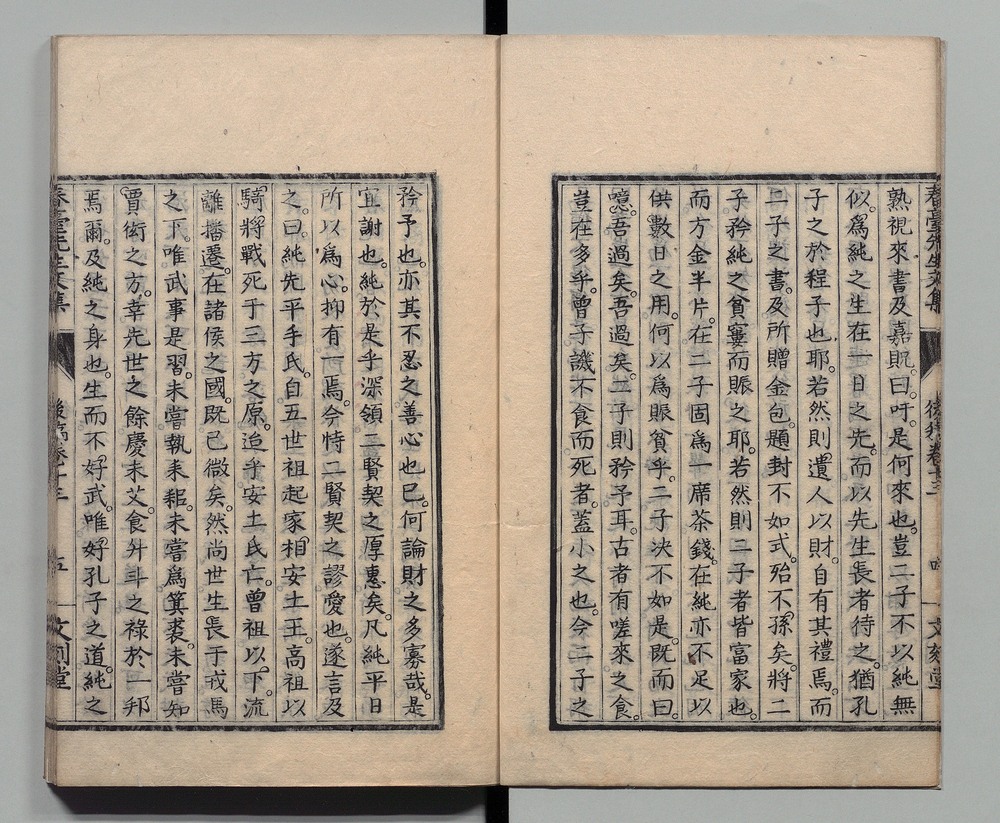 熟視來書及嘉貺。曰。吁。是何來也。豈二子不以純無
似。爲純之生在一日之先。而以先生長者待之。猶孔
子之於程子也耶。若然則遺人以財。自有其禮焉。而
二子之書。及所贈金包。題封不如式。殆不孫矣。將二
子矜純之貧寠而賑之耶。若然則二子者皆富家也。
而方金半片。在二子固爲一席茶錢。在純亦不足以
供數日之用。何以爲賑貧乎。二子决不如是。既而曰。
噫。吾過矣。吾過矣。二子則矜予耳。古者有嗟來之食。
豈在多乎。曾子譏不食而死者。蓋小之也。今二子之
矜予也。亦其不忍之善心也已。何論財之多寡哉。是
宜謝也。純於是乎深領二賢契之厚惠矣。凡純平日
所以爲心。抑有一焉。今恃二賢契之謬愛也。遂言及
之。曰。純先平手氏。自五世祖起家。相安土王。高祖以
騎將戰死于三方之原。迨乎安土氏亡。曾祖以下。流
離播遷。在諸侯之國。既已微矣。然尚世生長于戎馬
之下。唯武事是習。未嘗執耒耜。未嘗爲箕裘。未嘗知
賈衒之方。幸先世之餘慶未艾。食升斗之祿於一邦
焉爾。及純之身也。生而不好武。唯好孔子之道。純之
春臺先生文集
後稿卷十三
五
文刻堂